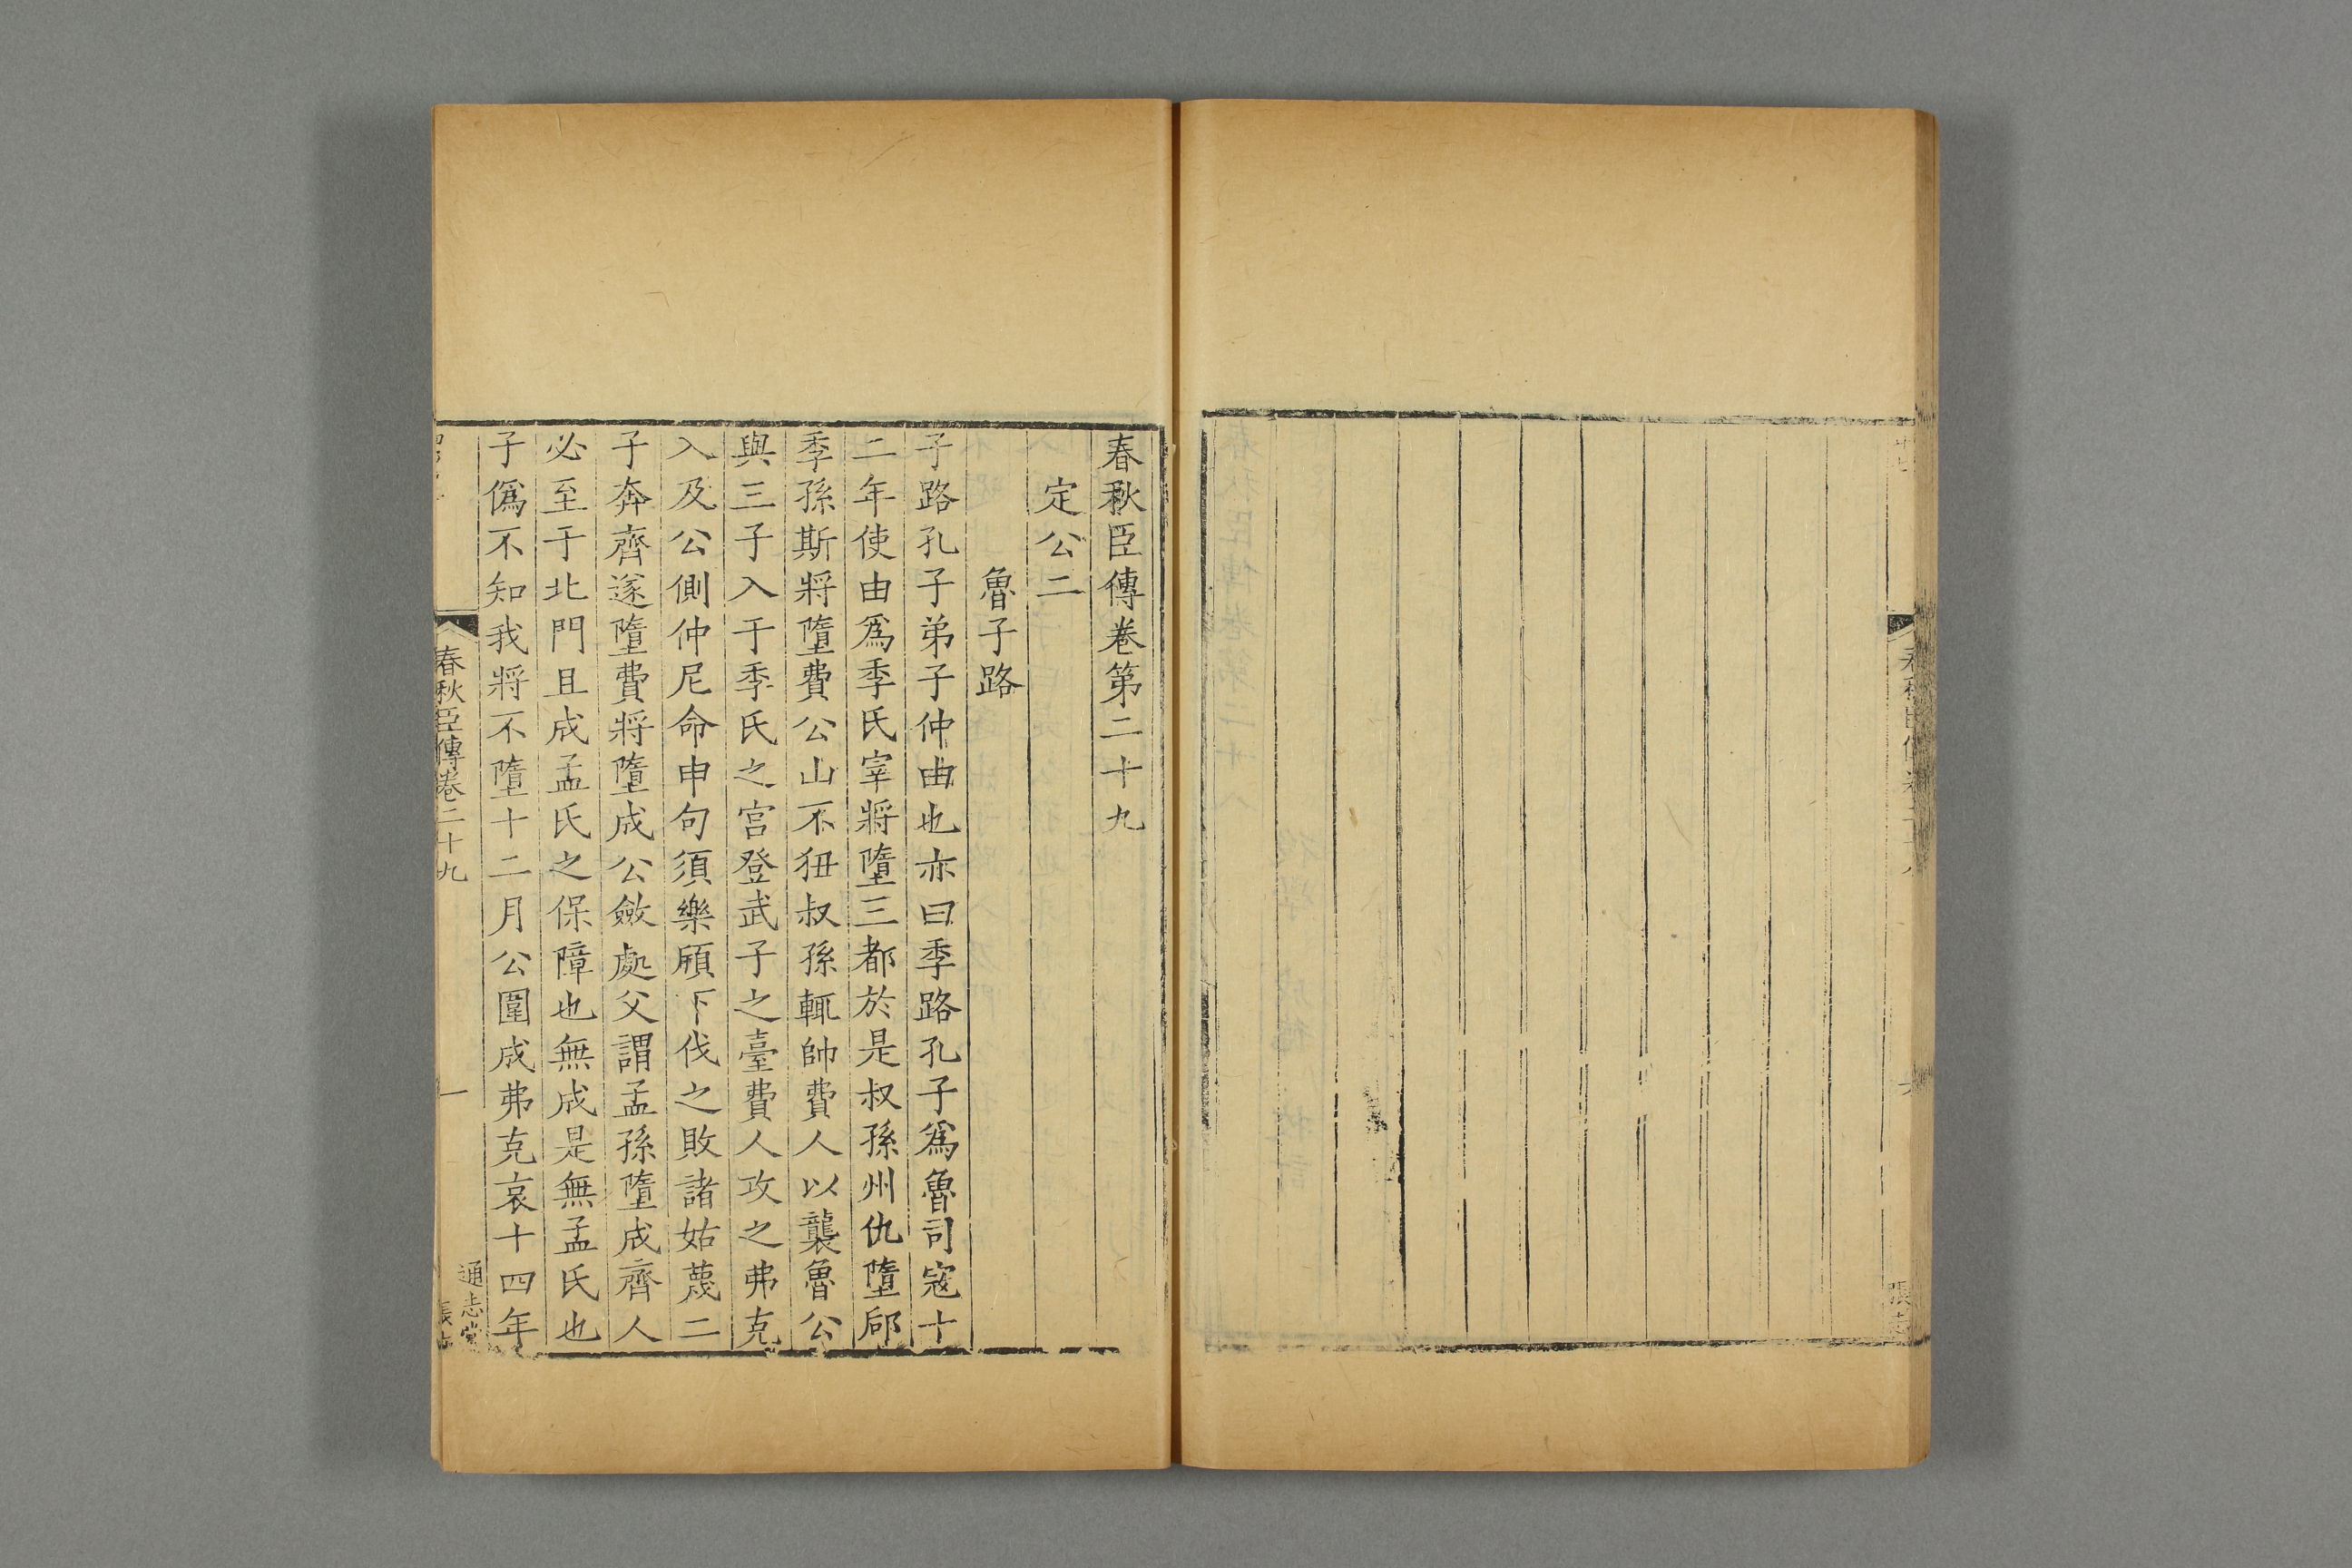 春秋臣傳卷第二十九
定公二
魯子路
子路孔子弟子仲由也亦曰季路孔子爲魯司寇十
二年使由爲季氏宰將墮三都於是叔孫州仇墮郈
季孫斯將墮費公山不狃叔孫輒帥費人以襲魯公
與三子入于季氏之宮登武子之臺費人攻之弗克
入及公側仲尼命申句須樂頎下伐之敗諸姑蔑二
子奔齊遂墮費將墮成公斂處父謂孟孫墮成齊人
必至于北門且成孟氏之保障也無成是無孟氏也
子僞不知我將不墮十二月公圍成弗克哀十四年
春秋臣傳卷二十九
一
通志堂